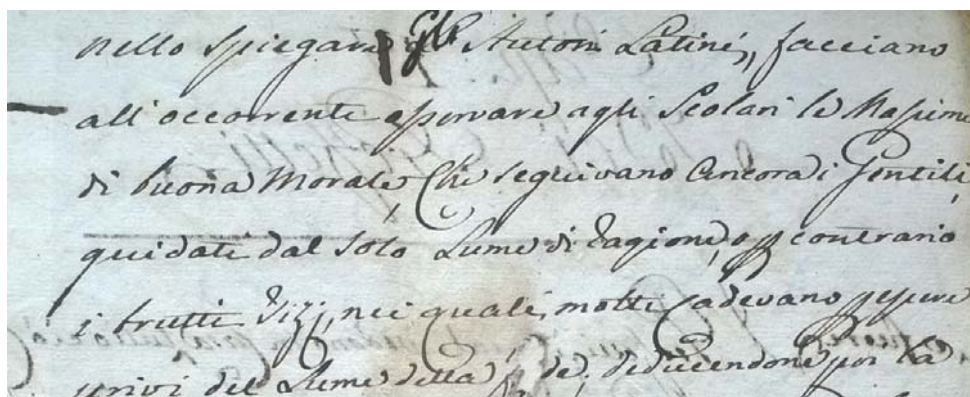 nello spiegare gli Autori Latini, facciano
all'occorrente osservare agli Scolari le Massime
di buona Morale, Che seguivano Ancora i Gentili,
guidati dal solo Lume di Ragione, o p contrario
i brutti Vizj, nei quali, molti cadevano p essere
privi del Lume della fede, deducendone poi la